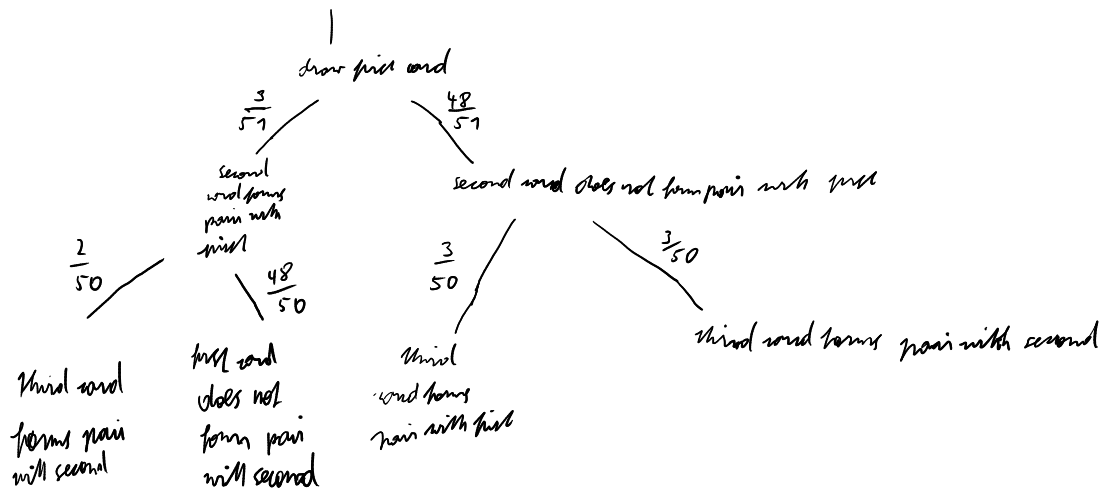 draw first card
3/51
48/51
second
card forms
pair with
first
second card does not form pair with first
2/50
48/50
3/50
3/50
third card
forms pair
will second
first card
does not
form pair
will second
third
card forms
pair with first
third card forms pair with second